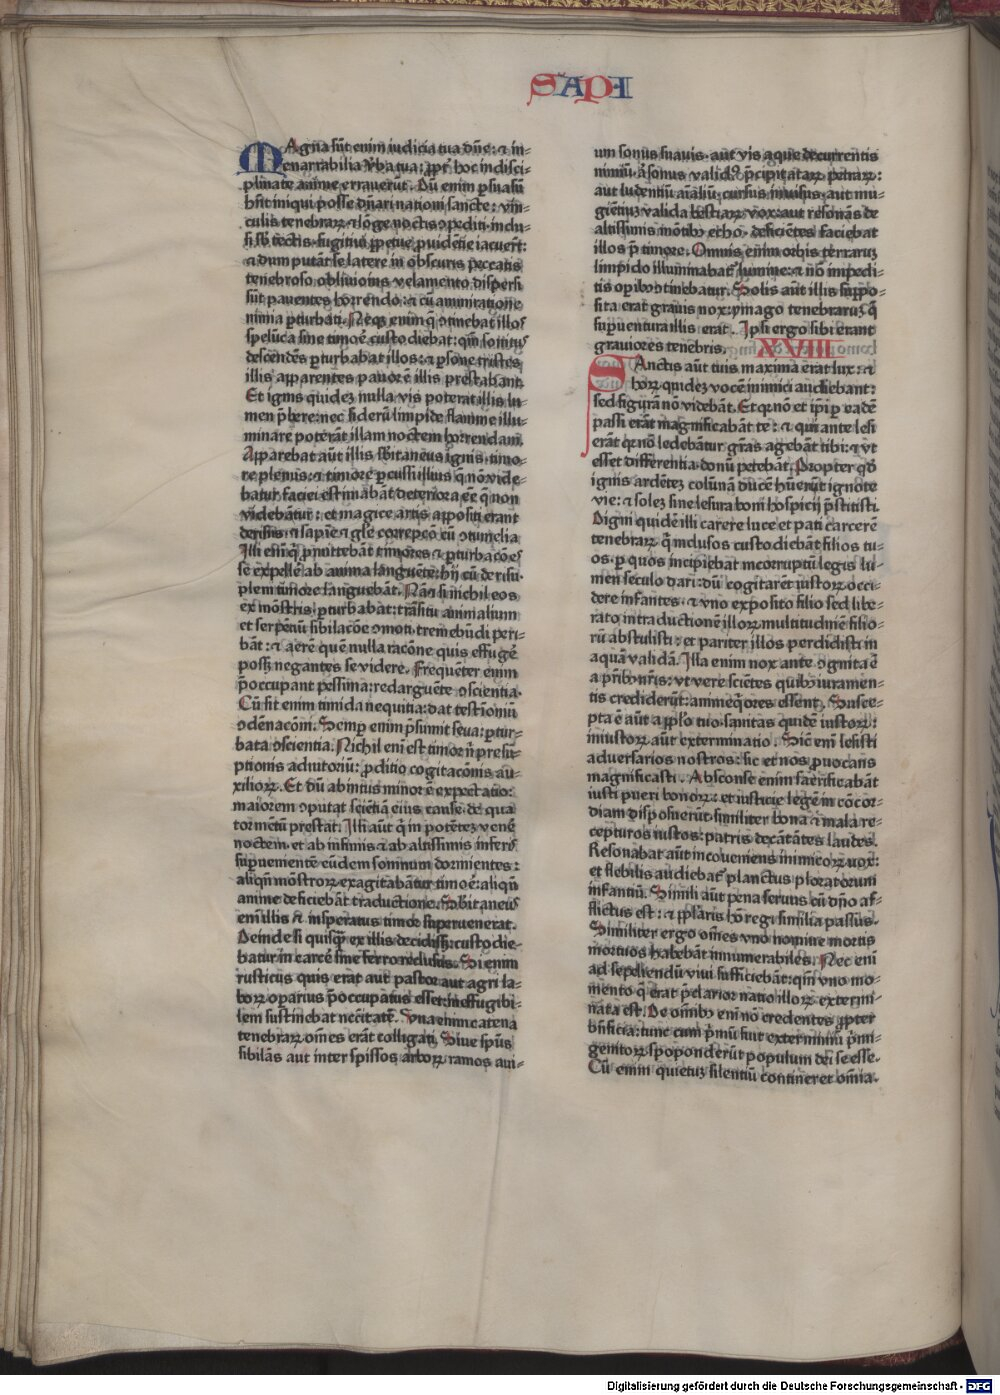 SAPI
MAgna sūt enim iudicia tua dn̄e: ⁊ in-
enarrabilia v̓ba tua: ꝓpt̓ hoc indisci-
plinate anime errauerūt. Dū enim ꝑsuasū
hn̄t iniqui posse dn̄ari nationi sancte: vin-
culis tenebraꝝ ⁊ lōge noctis ꝯpediti inclu-
si sb̓ tectis. fugitiui ꝑpetue ꝓuidētie iacuer̄t:
⁊ dum putāt se latere in obscuris peccatis
tenebroso obliuionis velamento dispersi
sūt pauentes horrendo: ⁊ cū ammiratione
nimia ꝑturbati. Neqꝫ enim q̄ ꝯtinebat illos
spelūca sine timoē custodiebat: qm̄ sonitus
descendēs ꝑturbabat illos: ⁊ ꝑsone tristes
illis apparentes pauorē illis prestabant.
Et ignis quidez nulla vis poterat illis lu-
men p̄bere: nec siderū limpide flamme illu-
minare poterāt illam noctem horrendam.
Apparebat aūt illis sb̓itaneus ignis. timo-
re plenus: ⁊ timore ꝑcussi illius q̄ nō vide-
batur faciei estimabāt deteriora eē q̄ non
videbātur: et magice artis appositi erant
derisus ⁊ sapiē ⁊ gl̄e correpcō cū ꝯtumelia
Illi em̄ q̄ ꝓmittebāt timores ⁊ ꝑturbacōes
se expellē ab anima languēte: hij cū derisu
pleni timore languebāt. Nā ⁊ si nichil eos
ex mōstris ꝑturbabat: trāsitu animalium
et serpētiū sibilacōe ꝯmoti. tremebūdi peri-
bāt: ⁊ aerē quē nulla racōne quis effugē
posꝫ negantes se videre. Frequēter enim
p̄occupant pessima: redarguēte ꝯscientia.
Cū sit enim timida nequitia: dat testīoniū
ꝯdēnacōni. Semꝑ enim p̄sumit seua: ꝑtur-
bata ꝯscientia. Nichil em̄ est timor n̄ presū-
ptionis adiutoriū: ꝓditio cogitacōnis au-
xilioꝝ. Et dū ab intus minor ē expectatio:
maiorem ꝯputat sciētiā eius cause. de qua
tormētū prestat. Illi aūt q̄ inpotētez venē
noctem. et ab infimis ⁊ ab altissimis inferis
suꝑuenientē eūdem somnum dormientes:
aliqn̄ mōstroꝝ exagitabātur timoē: aliqn̄
anime deficiebāt traductione. Sb̓itaneus
em̄ illis ⁊ insperatus timor superuenerat.
Deinde si quisqꝫ ex illis decidissꝫ: custodie-
batur in carcē sine ferro reclusus. Si enim
rusticus quis erat aut pastor aut agri la-
boꝝ oꝑarius p̄occupatus esset: ineffugibi-
lem sustinebat necītatē. Vna enim catena
tenebraꝝ om̄es erāt colligati. Siue sp̄us
sibilās aut inter spissos arboꝝ ramos aui-
um sonus suauis. aut vis aque decurrentis
nimiū. ⁊ sonus validꝰ p̄cipitataꝝ petraꝝ:
aut ludentiū aīaliū. cursus inuisus. aut mu-
giētiuz valida bestiaꝝ vox: aut resonās de
altissimis mōtibꝰ echo. deficiētes faciebāt
illos p̄ timore. Omnis enim orbis terraruz
limpido illuminabat̓ lumine: ⁊ nō impedi-
tis oꝑibꝰ ꝯtinebatur. Solis aūt illis suꝑpo-
sita erat grauis nox: ymago tenebraruꝫ. q̄
suꝑuentura illis erat. Ipsi ergo sibi erant
grauiores tenebris. XVIII
SAnctis aūt tuis maxima erat lux: ⁊
hoꝝ quidez vocē inimici audiebant:
sed figurā nō videbāt. Et qꝛ nō et ip̄i ꝑ eadē
passi erāt magnificabāt te: ⁊ qui ante lesi
erāt qꝛ nō ledebātur gr̄as agebāt tibi: ⁊ vt
esset differentia. donū petebāt. Propter qd̓
ignis ardētez colūnā ducē hūerūt ignote
vie: ⁊ solez sine lesura boni hospicij p̄stitisti
Digni quidē illi carere luce et pati carcerē
tenebraꝝ q̄ inclusos custodiebāt filios tu-
os. ꝑ quos incipiebat incorruptū legis lu-
men seculo dari: dū cogitarēt iustoꝝ occi-
dere infantes. ⁊ vno exposito filio sed libe-
rato in traductionē illoꝝ multitudinē filio-
rū abstulisti: et pariter illos perdidisti in
aqua valida. Illa enim nox ante ꝯgnita ē
a p̄ribꝰ nr̄is: vt vere sciētes quibꝰ iuramen-
tis crediderūt: animeq̄ores essent. Suscep-
pta ē aūt a ppl̄o tuo. sanitas quidē iustoꝝ:
iniustoꝝ aūt exterminatio. Sic em̄ lesisti
aduersarios nostros: sic et nos ꝓuocans
magnificasti. Absconse enim sac̄rificabāt
iusti pueri bonoꝝ: et iusticie legē in cōcor-
diam disposuerūt. similiter bona ⁊ mala re-
cepturos iustos: patris decātātes laudes.
Resonabat aūt incoueniens inimicoꝝ vox:
et flebilis audiebat̓ planctus ploratorum
infantiū. Simili aūt pena seruus cū dn̄o af-
flictus est: ⁊ pplāris hō regi similia passus.
Similiter ergo om̄es vno nomine mortis
mortuos habebāt innumerabiles. Nec em̄
ad sepeliendū viui sufficiebāt: qm̄ vno mo-
mento q̄ erat p̄clarior natio illoꝝ extermi-
nata est. De om̄ibꝰ em̄ nō credentes ꝓpter
bn̄ficia: tunc cum p̄mū fuit exterminiū p̄mi-
genitoꝝ spoponderūt populum dei se esse.
Cū enim quietuz silentiū contineret om̄ia.
Digitalisierung gefördert durch die Deutsche Forschungsgemeinschaft - DFG